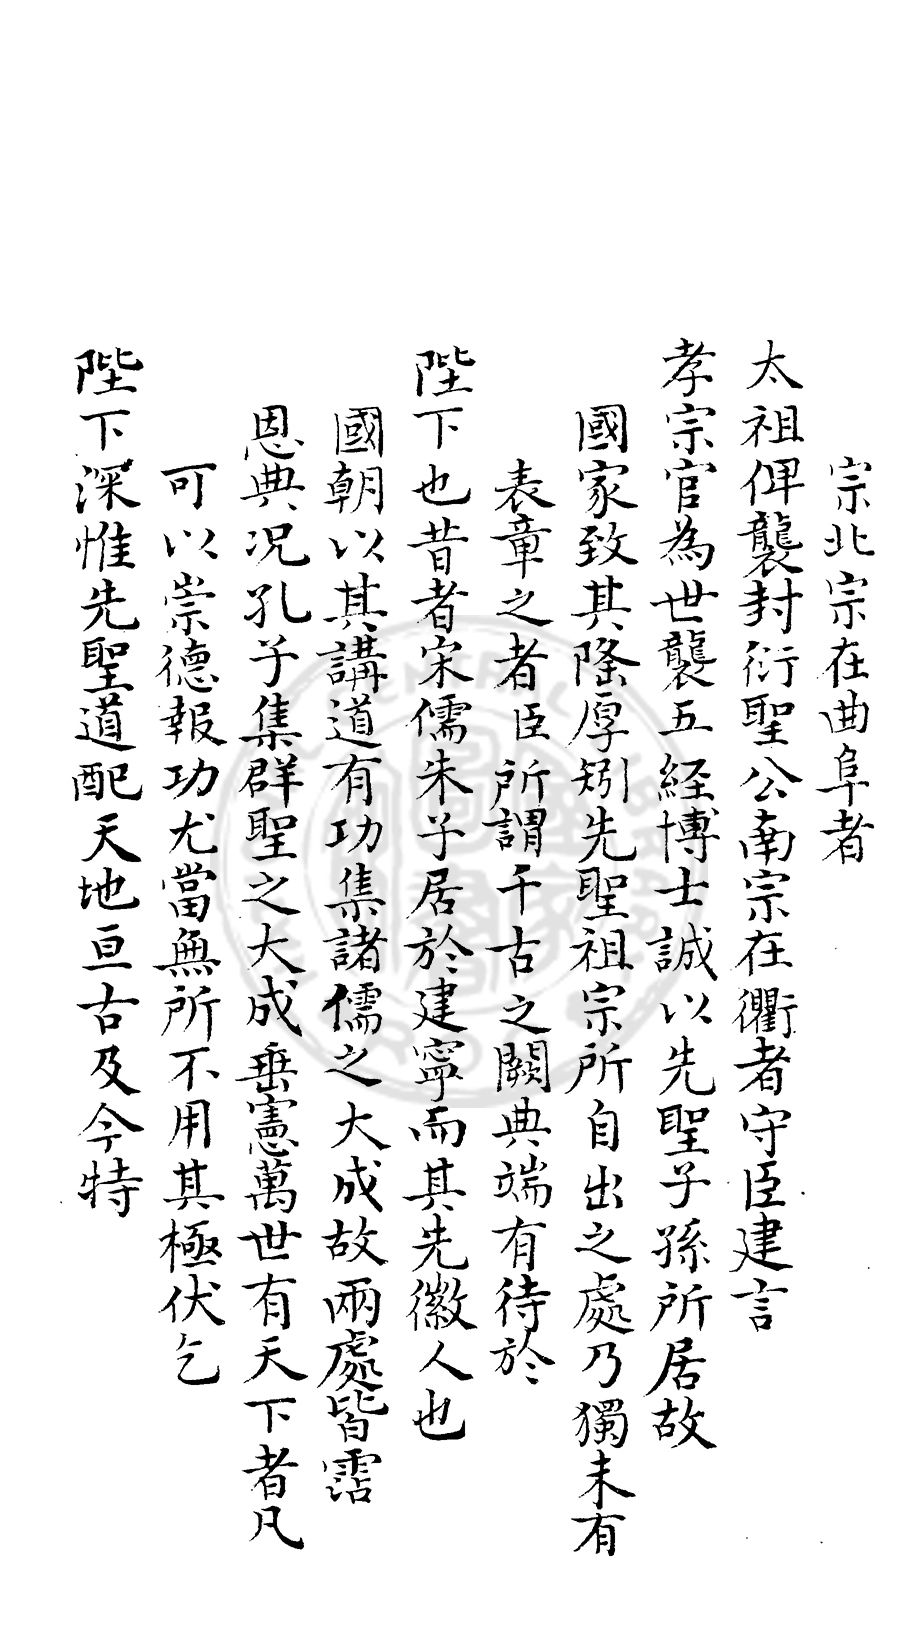 宗北宗在曲阜者
太祖俾襲封衍聖公南宗在衢者守臣建言
孝宗官為世襲五經博士誠以先聖子孫所居故
國家致其隆厚矧先聖祖宗所自出之處乃獨未有
表章之者臣所謂千古之闕典端有待於
陛下也昔者宋儒朱子居於建寧而其先徽人也
國朝以其講道有功集諸儒之大成故兩處皆霑
恩典况孔子集群聖之大成垂憲萬世有天下者凡
可以崇德報功尤當無所不用其極伏乞
陛下深惟先聖道配天地亘古及今特